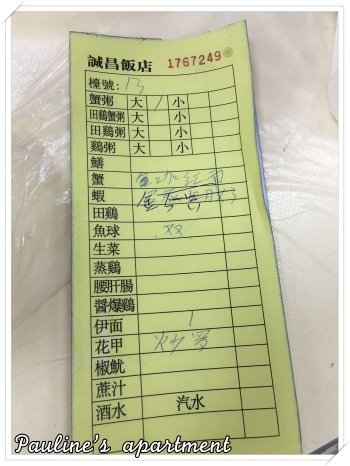 誠昌飯店 1767249
檯號: 13
蟹粥 大 1 小
田鷄蟹粥 大 小
田鷄粥 大 小
鷄粥 大 小
鱔
蟹
蝦
田鷄
魚球 双
生菜
蒸鷄
腰肝腸
醬爆鷄
伊面 1
花甲
椒魷
蔗汁
酒水 汽水
Pauline's apartment